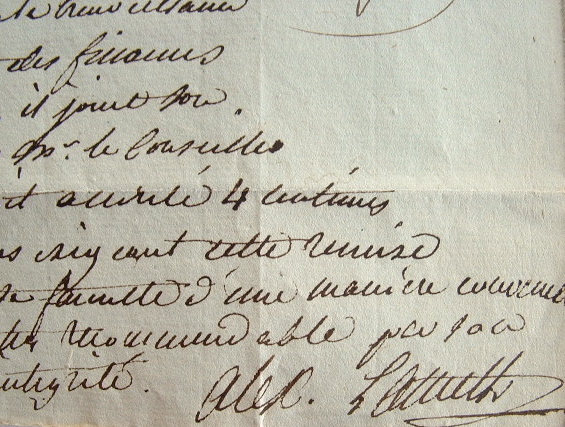 la bienveillance
des finances
il joint son
Mr. le Conseiller
it accordé 4 centimes
exigeant cette remise
sa famille d'une manière convenable
recommandable par son
intégrité.
Alex. Lameth